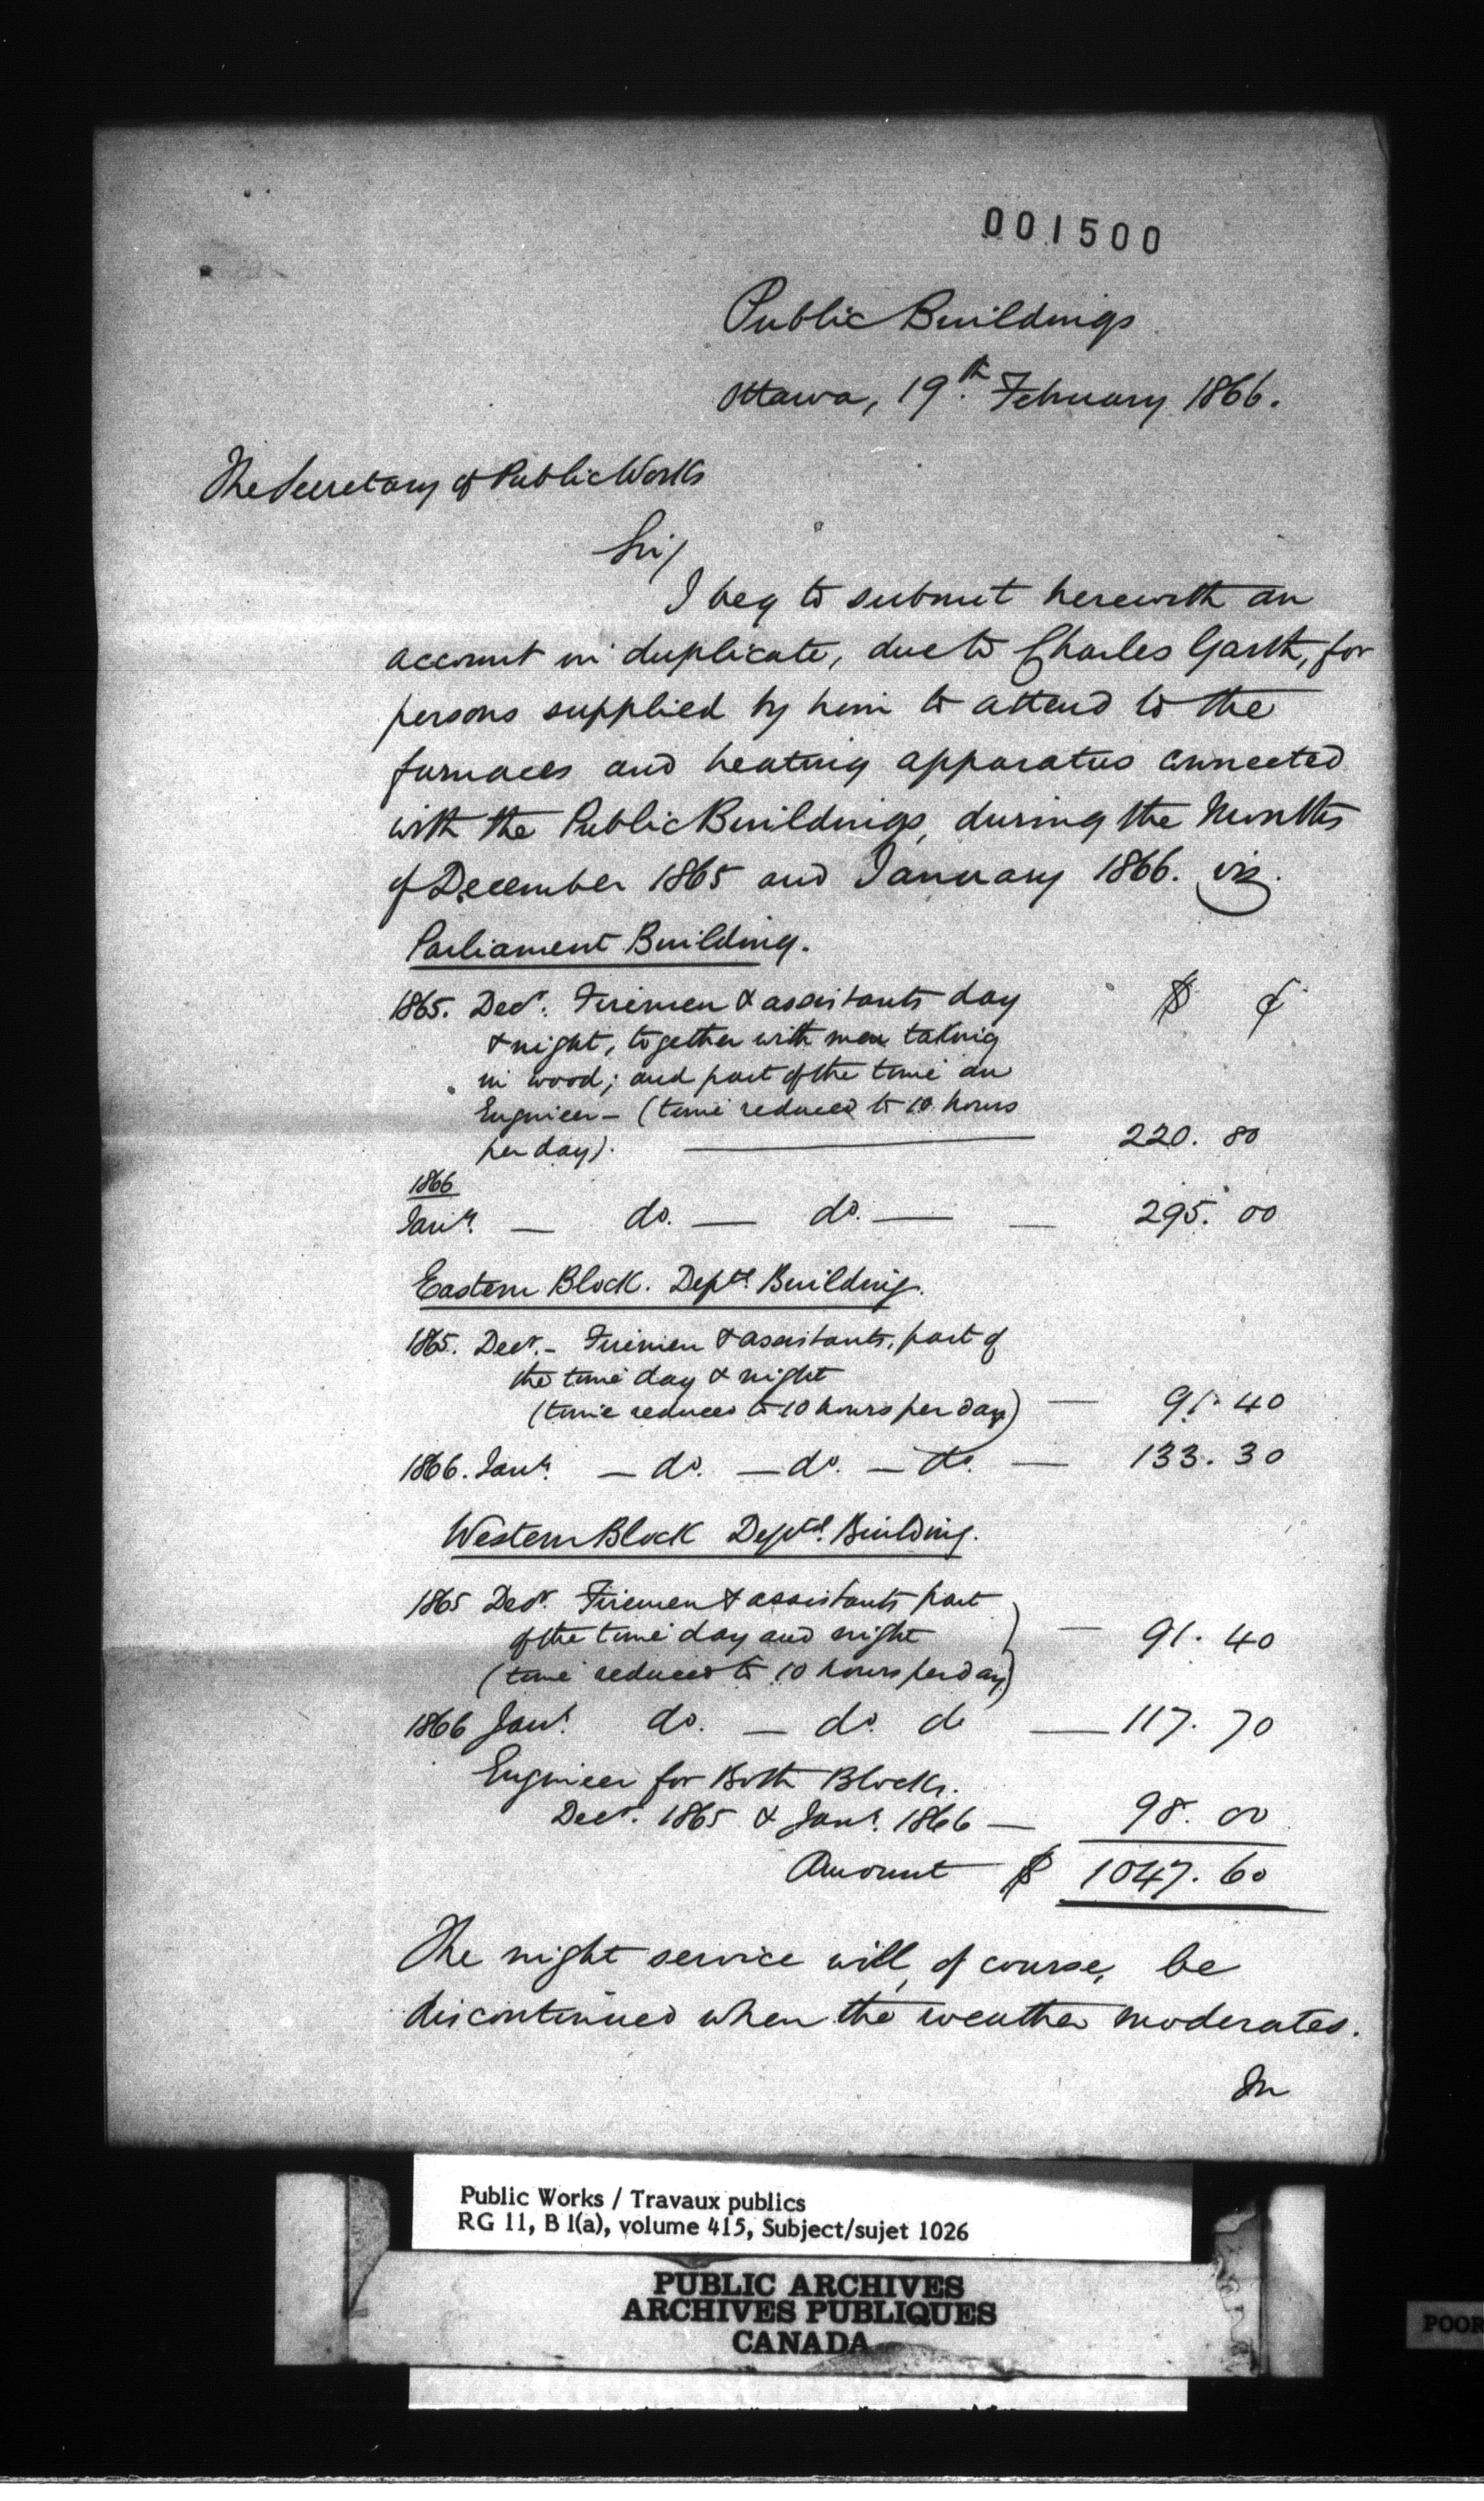 001500
Public Buildings
Ottawa, 19th February 1866.
The Secretary of Public Works
Sir/
I beg to submit herewith an
account in duplicate, due to Charles Garth, for
persons supplied by him to attend to the
furnaces and heating apparatus connected
with the Public Buildings, during the Months
of December 1865 and January 1866. viz.
Parliament Building.
1865. Decr. Firemen & assistants day $ ¢
& night, together with men taking
in wood; and part of the time an
Engineer - (time reduced to 10 hours
per day). — 220. 80
1866
Jany. — do. — do. — — 295. 00
Eastern Block. Deptl. Building.
1865. Decr. - Firemen & assistants, part of
the time day & night
(time reduced to 10 hours per day) — 91. 40
1866. Jany. — do. — do. — do. — 133. 30
Western Block Deptl. Building.
1865 Decr. Firemen & assistants part
of the time day and night — 91. 40
(time reduced to 10 hours per day)
1866 Jany. do. — do. do — 117. 70
Engineer for Both Blocks.
Decr. 1865 & Jany. 1866 — 98. 00
Amount $ 1047. 60
The night service will, of course, be
discontinued when the weather moderates.
In
Public Works / Travaux publics
RG 11, B 1(a), volume 415, Subject/sujet 1026
PUBLIC ARCHIVES
ARCHIVES PUBLIQUES
CANADA
POOR